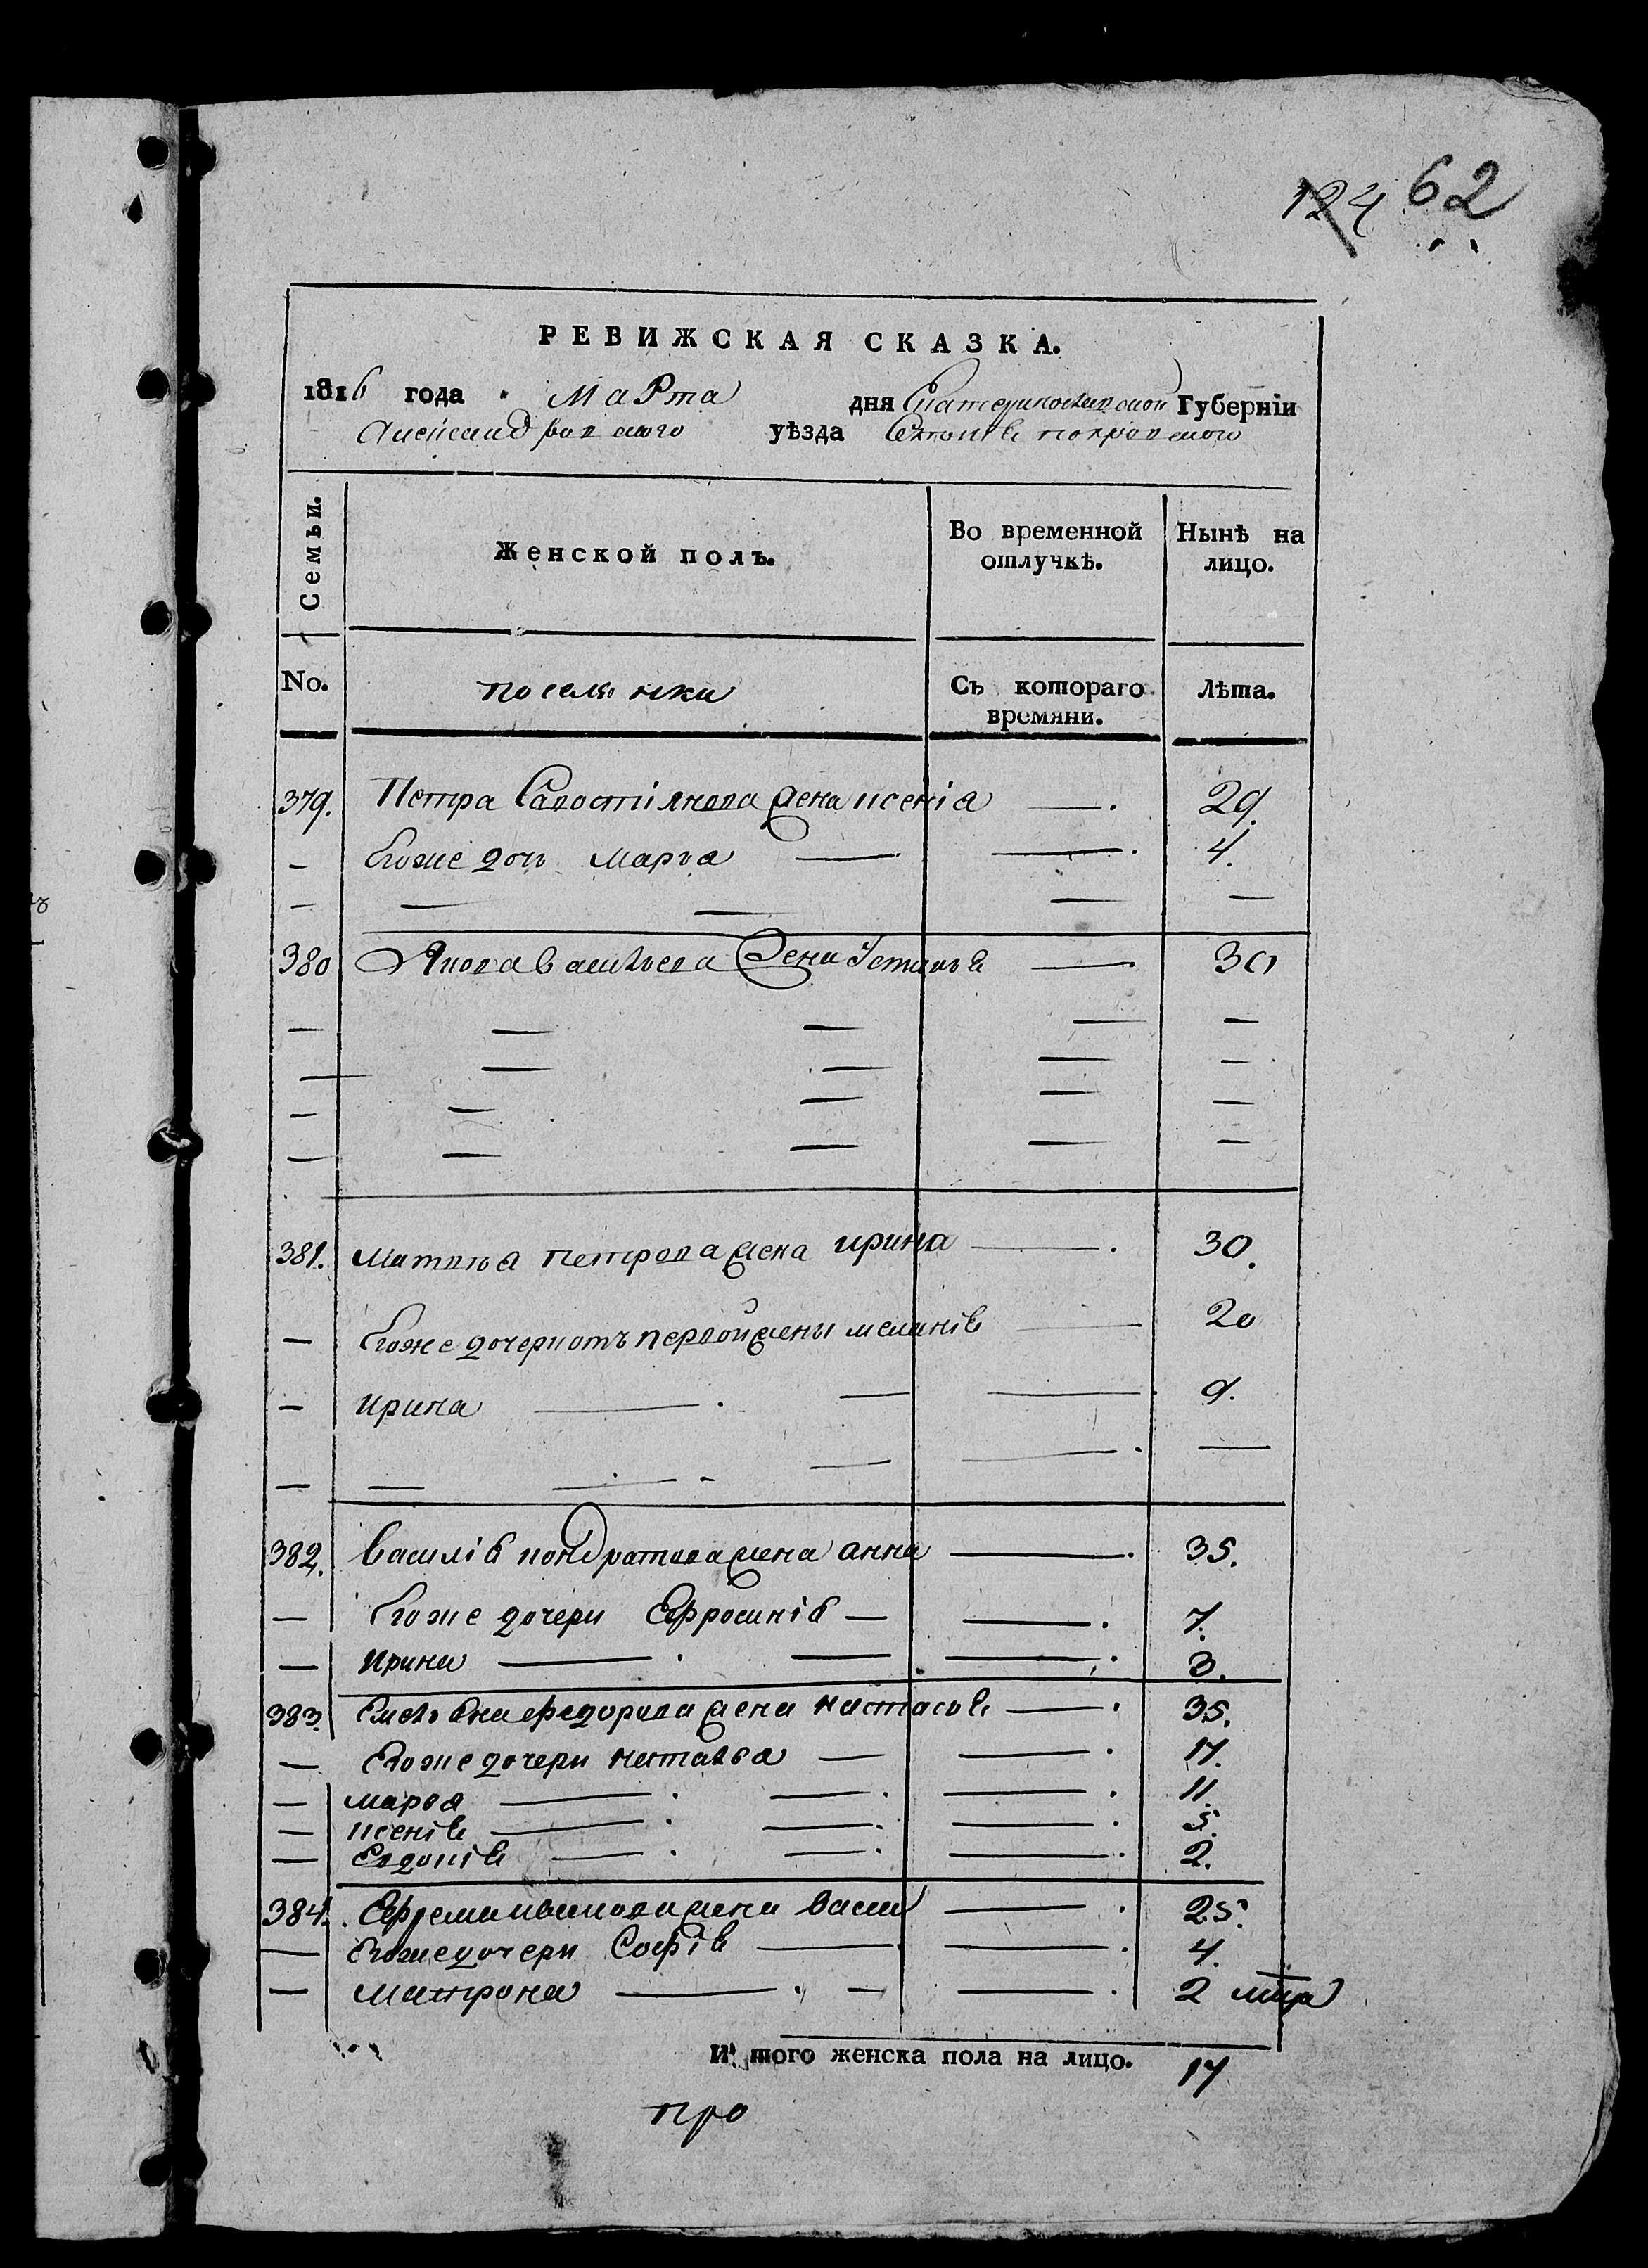 124 62
РЕВИЖСКАЯ СКАЗКА.
1816 года Марта дня Екатеринославской Губернїи
Александровского уѣзда Села покровского
Семьи. Женской полъ. Во временной отлучкѣ. Нынѣ на лицо.
No. поселянки Съ котораго времяни. Лѣта.
379. Петра Савостіянова жена ксенія — . 29.
— Егоже дочь марѳа — — . 4.
— — — — —
380 Якова васильева жена Устинья — 30
— — — — —
— — — — —
— — — — —
— — — — —
381. Матвѣя петрова жена ирина — . 30.
— Егоже дочери отъ первой жены меланія — 20
— ирина — . — — . 9.
— — — — — . —
382. василія кондратова жена анна — . 35.
— Егоже дочери Ефросинія — — . 7.
— Ирина — . — — . 3.
383. Емельяна федорова жена настасья — . 35.
— Егоже дочери наталья — — . 17.
— марѳа — . — . — . 11.
— ксенія — . — . — . 5.
— Евдокія — . — . — . 2.
384. Ефрема жена — . 25.
— Егоже дочери Софія — . — . 4.
— матрона — . — — . 2 мца
И того женска пола на лицо. 17
про